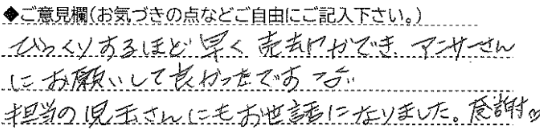 ◆ご意見欄(お気づきの点などご自由にご記入下さい。)
びっくりするほど早く売却ができ アンサーさん
にお願いして良かったです
担当の児玉さんにもお世話になりました。感謝♡